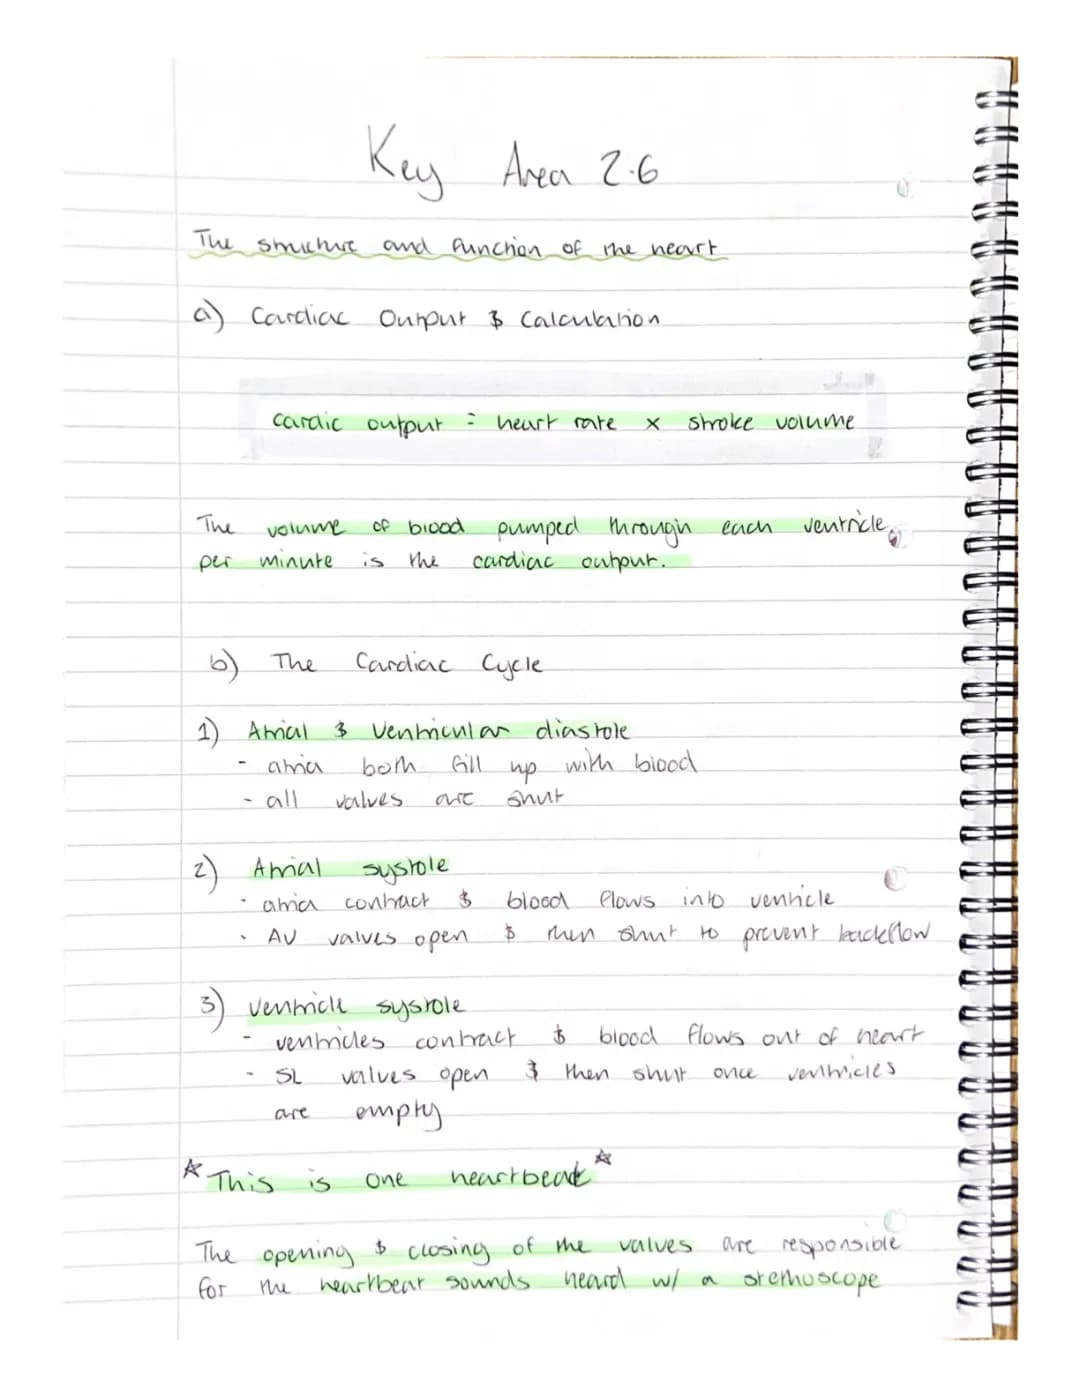 Key Area 2.6
The structure and function of the heart
a) Cardiac Output & Calculation
cardic output = heart rate x stroke volume
The volume of blood pumped through each ventricle
per minute is the cardiac output.
b) The Cardiac Cycle
1) Atrial & Ventricular diastole
- atria both fill up with blood
- all valves are shut
2) Atrial systole
- atria contract & blood flows into ventricle
- AV valves open & then shut to prevent backflow
3) ventricle systole
- ventricles contract & blood flows out of heart
- SL valves open & then shut once ventricles
are empty
*This is one heartbeat*
The opening & closing of the valves are responsible
for the heartbeat sounds heard w/ a stethoscope